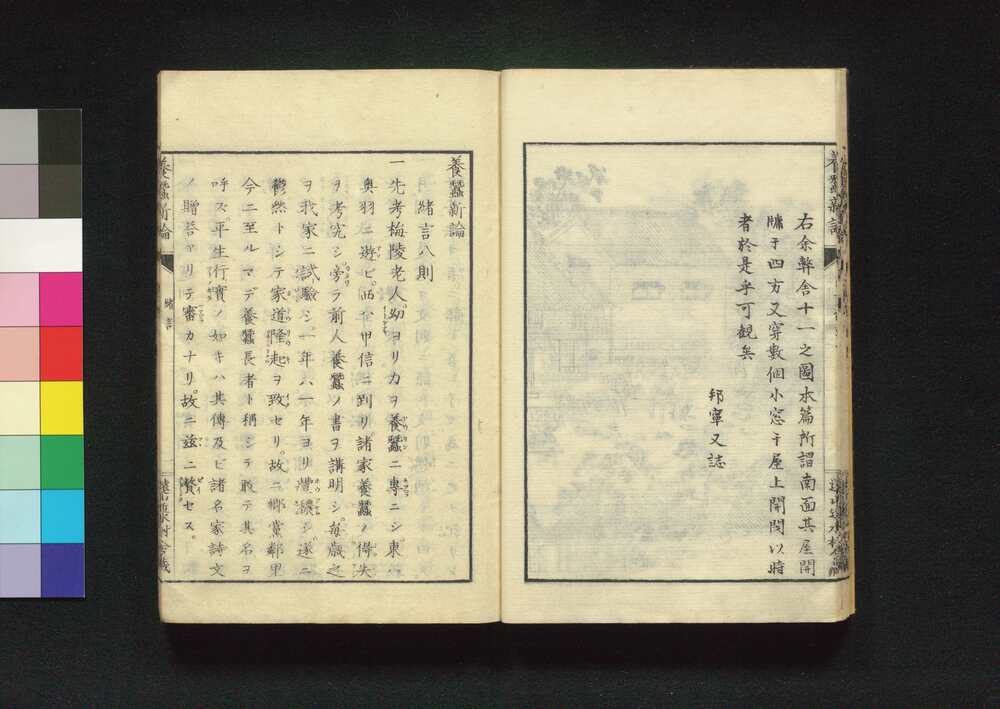 右余弊舎十一之圖本篇所謂南面其屋開
牖于四方又穿數個小窓于屋上開閉以時
者於是乎可觀矣
邦寧又誌
養蠶新論
緒言八則
一 先考梅陵老人幼ヨリ力ヲ養蠶ニ專ニシ東
奥羽ニ遊ビ西 甲信ニ到リ諸家養蠶ノ得失
ヲ考究シ旁ラ前人養蠶ノ書ヲ講明シ每歳之
ヲ我家ニ試驗シ一年ハ一年ヨリ豐穰シ遂ニ
欝然トシテ家道隆起ヲ致セリ故ニ郷黨鄰里
今ニ至ルマデ養蠶長者ト稱シテ敢テ其名ヲ
呼ズ平生行實ノ如キハ其傳及ビ諸名家詩文
ノ贈答アリテ審カナリ故ニ茲ニ贅セス
養蠶新論
緒言